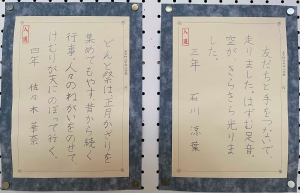 友だちと手をつないで、
走りました。はずむ足音、
空がきらきら光りま
した。
三年 石川 涼葉
入選
どんと祭は正月かざりを
集めてもやす昔から続く
行事。人々のねがいをのせて、
けむりが天にのぼって行く。
四年 佐々木
入選